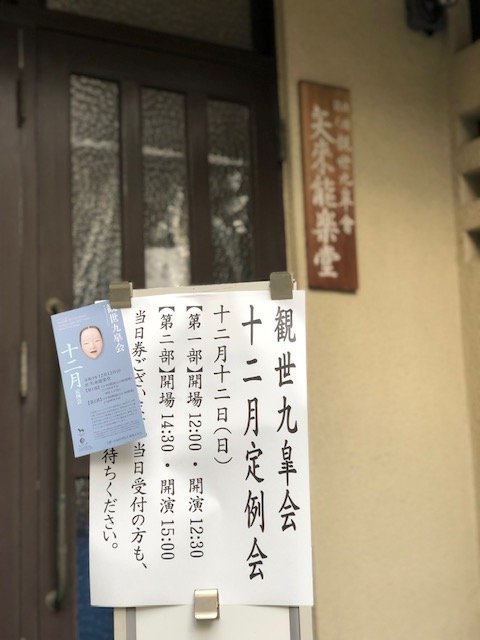 観世九皐会
十二月定例会
十二月十二日(日)
【第一部】開場 12:00・開演 12:30
【第二部】開場 14:30・開演 15:00
当日券ござい
当日受付の方も、
待ちください。
世九皐会
十二月
観世九皐會
矢来能楽堂